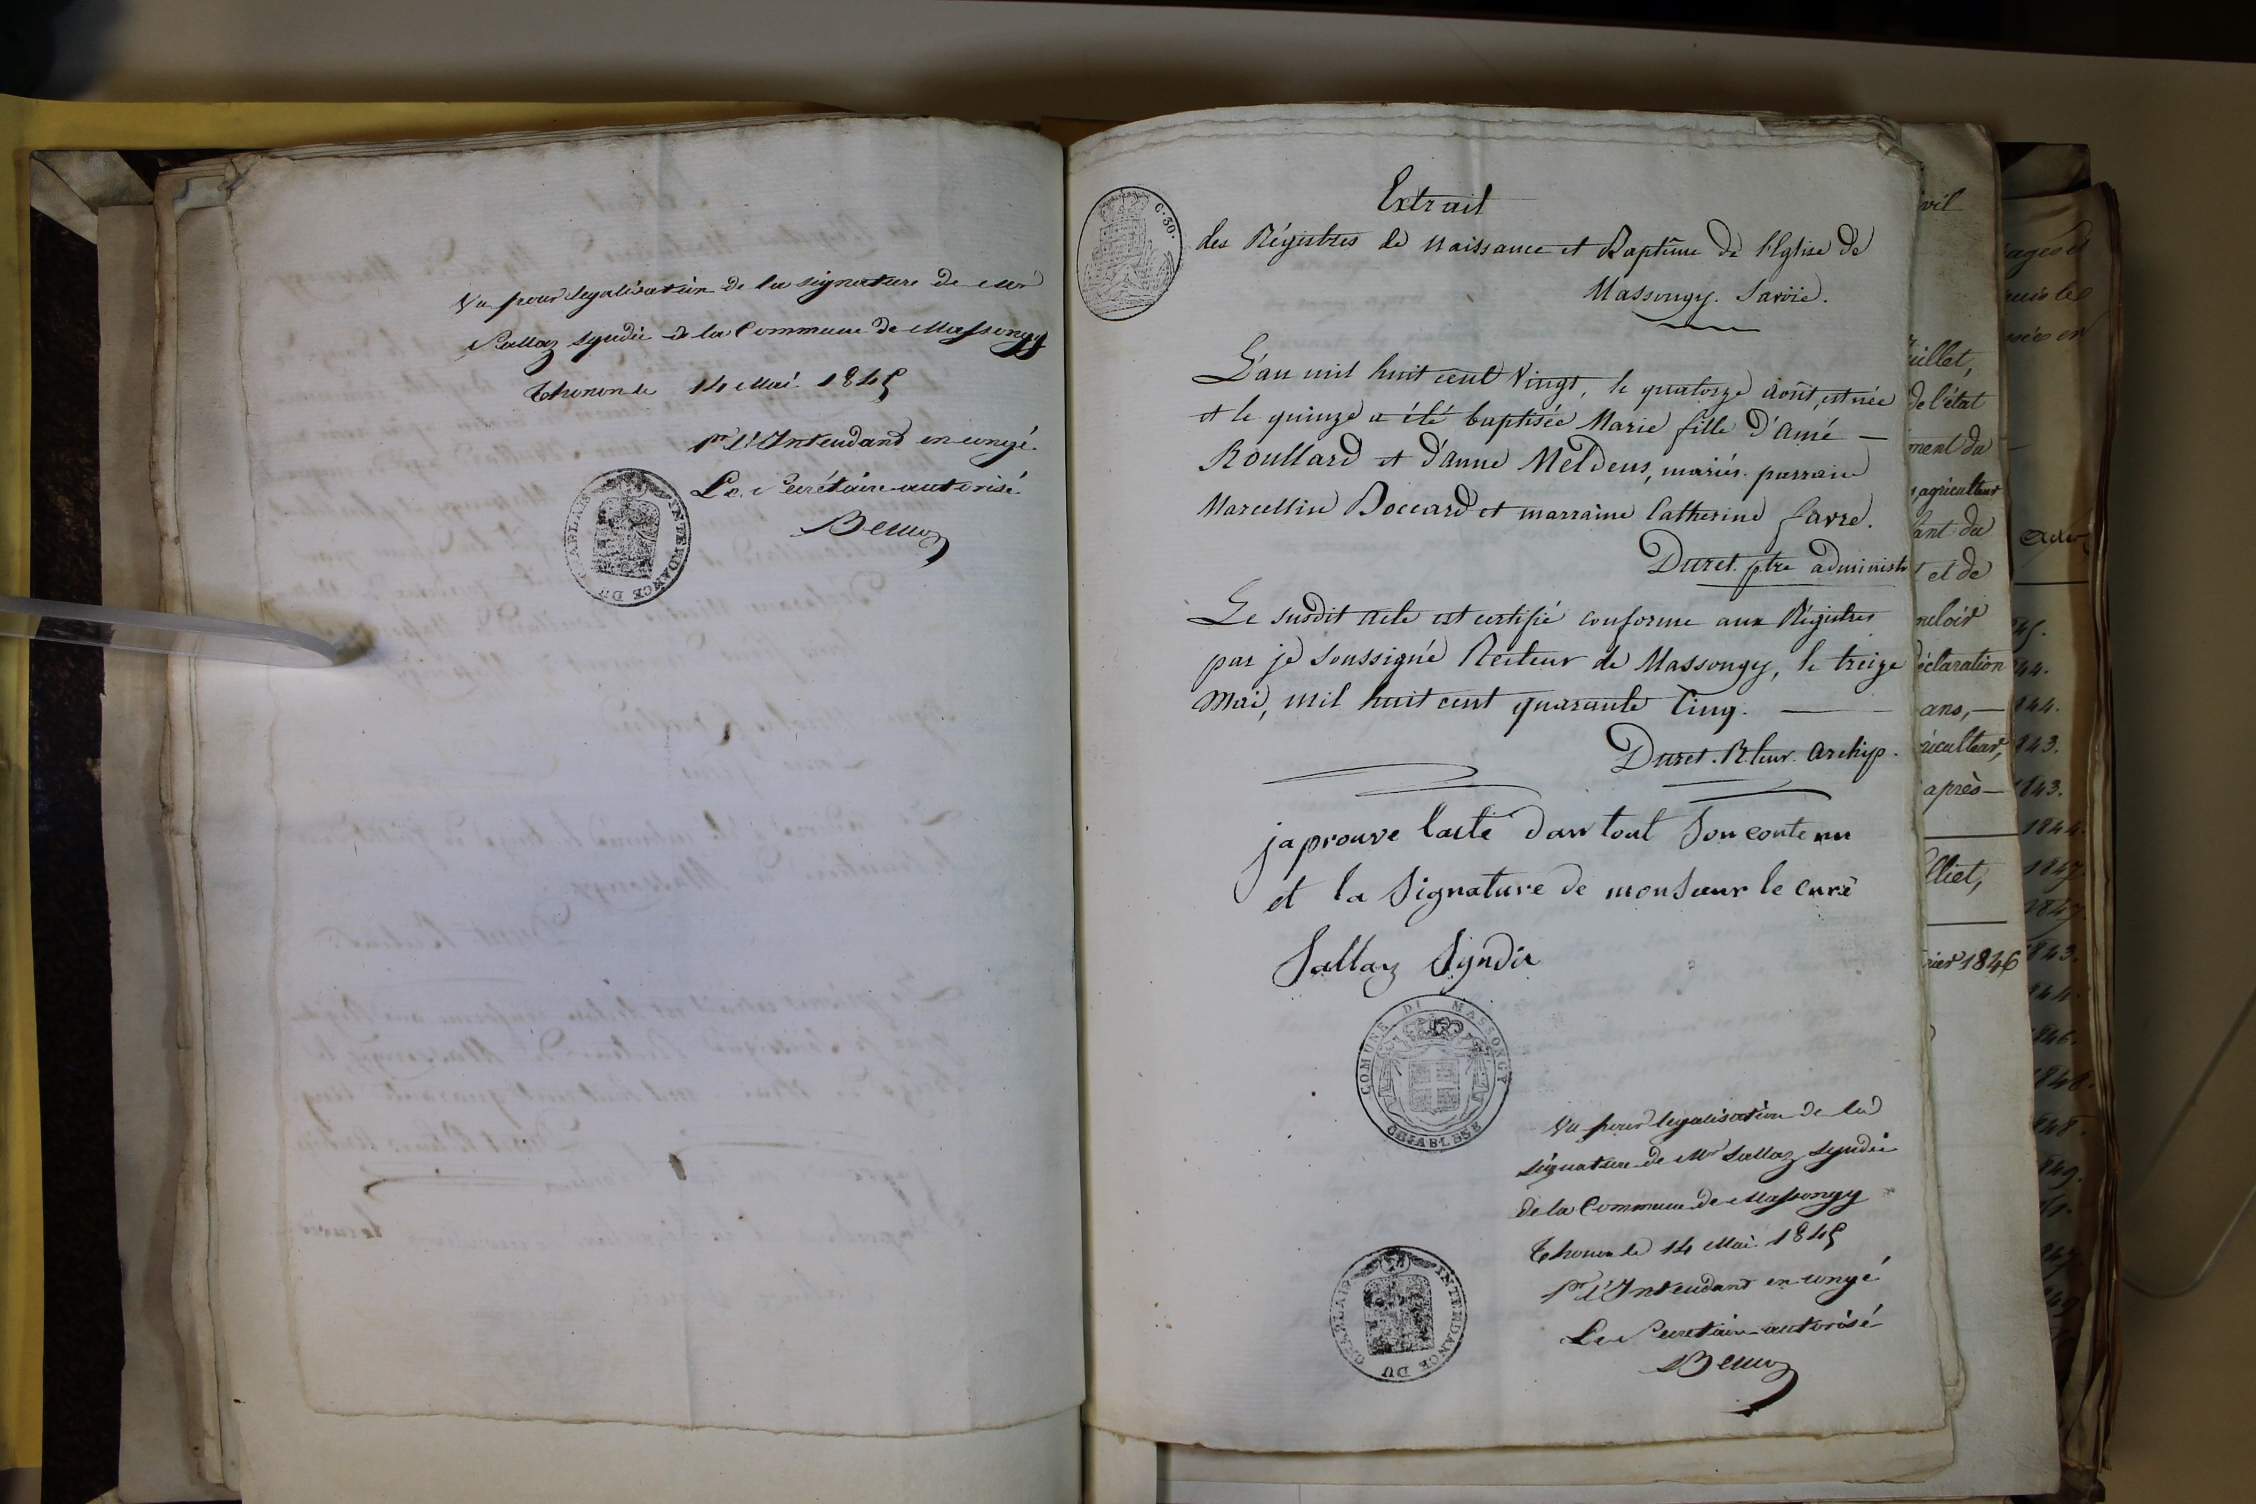 Vu pour légalisation de la signature de Mr
Sallaz syndic de la Commune de Massongy
Thonon le 14 Mai 1845
pr l'Intendant en congé
Le Secrétaire autorisé
INTENDANCE DU CHABLAIS
C. 30.
Extrait
des Régistres de Naissance et Baptême de l'Eglise de
Massongy. Savoie.
L'an mil huit cent vingt, le quatorze août, est née
et le quinze a été baptisée Marie fille d'Amé —
Roullard et d'anne Meldens, mariés. parrain
Marcellin Boccard et marraine Catherine favre.
Duret ptre administr
Le susdit acte est certifié conforme aux Régistres
par je soussigné Recteur de Massongy, le treize
Mai, mil huit cent quarante Cinq. —
Duret. R.teur. Archip.
japrouve lacte dans tout Son contenu
et la Signature de monsieur le curé
Sallaz Syndic
COMUNE DI MASSONGY
CHIABLESE
Vu pour légalisation de la
signature de Mr Sallaz syndic
de la Commune de Massongy
Thonon le 14 Mai 1845
pr l'Intendant en congé
Le Secretaire autorisé
INTENDANCE DU CHABLAIS
vil
uillet,
de l'état
ment du
agriculteur
ant du
et de
déclaration
ans, —
riculteur,
après —
lliet,
rier 1846
44.
844.
843.
1843.
1844.
1847.
1847.
1843.
844.
846.
1848.
848.
849.